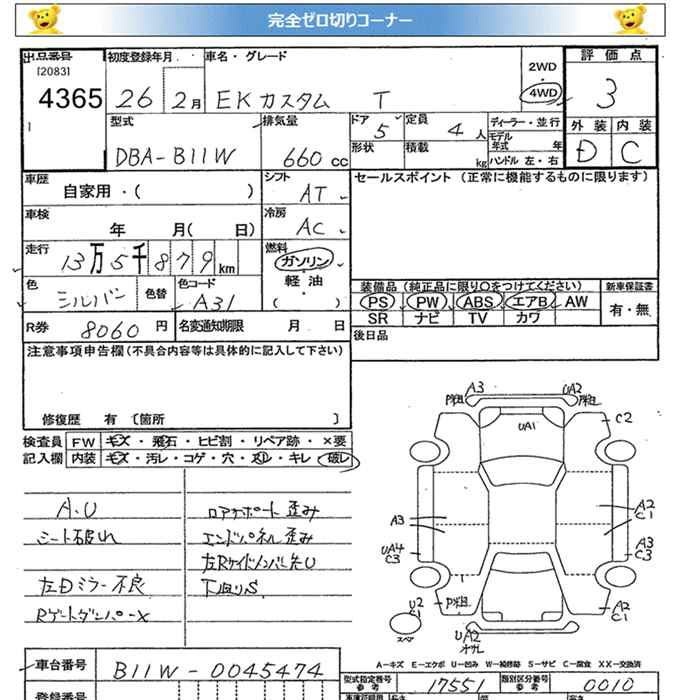 完全ゼロ切りコーナー
出品番号 初度登録年月 車名・グレード 2WD・4WD 評価点
[2083] 4365 26 2月 EKカスタム T 3
型式 排気量 ドア 定員 ディーラー・並行 外装 内装
DBA-B11W 660cc 5 4人 モデル年式 年 D C
形状 積載 kg ハンドル 左・右
車歴 自家用・( ) シフト AT セールスポイント (正常に機能するものに限ります)
車検 年 月( 日) 冷房 AC
走行 13万5千879km 燃料 ガソリン・軽油 ( )
色 シルバー 色替 色コード A31 装備品 (純正品に限り○をつけてください) 新車保証書
PS PW ABS エアB AW 有・無
SR ナビ TV カワ
R券 8060円 名変通知期限 月 日 後日品
注意事項申告欄(不具合内容等は具体的に記入して下さい)
修復歴 有 〔箇所 〕
検査員 FW キズ・飛石・ヒビ割・リペア跡・×要
記入欄 内装 キズ・汚レ・コゲ・穴・スレ・キレ・破レ
A.U
シート破れ
左Dミラー不良
Rゲートダンパー×
ロアサポート歪み
エンドパネル歪み
左RサイドメンバーU
下回りS
A3 UA2
UA1 C2
A3 A2 C1
UA4 C3 A3 C3
U2 C1 A2 C1
スペア UA2
A-キズ E-エクボ U-凹み W-補修跡 S-サビ C-腐食 XX-交換済
車台番号 B11W-0045474
型式指定番号 参考 17551 類別区分番号 参考 0010
登録番号